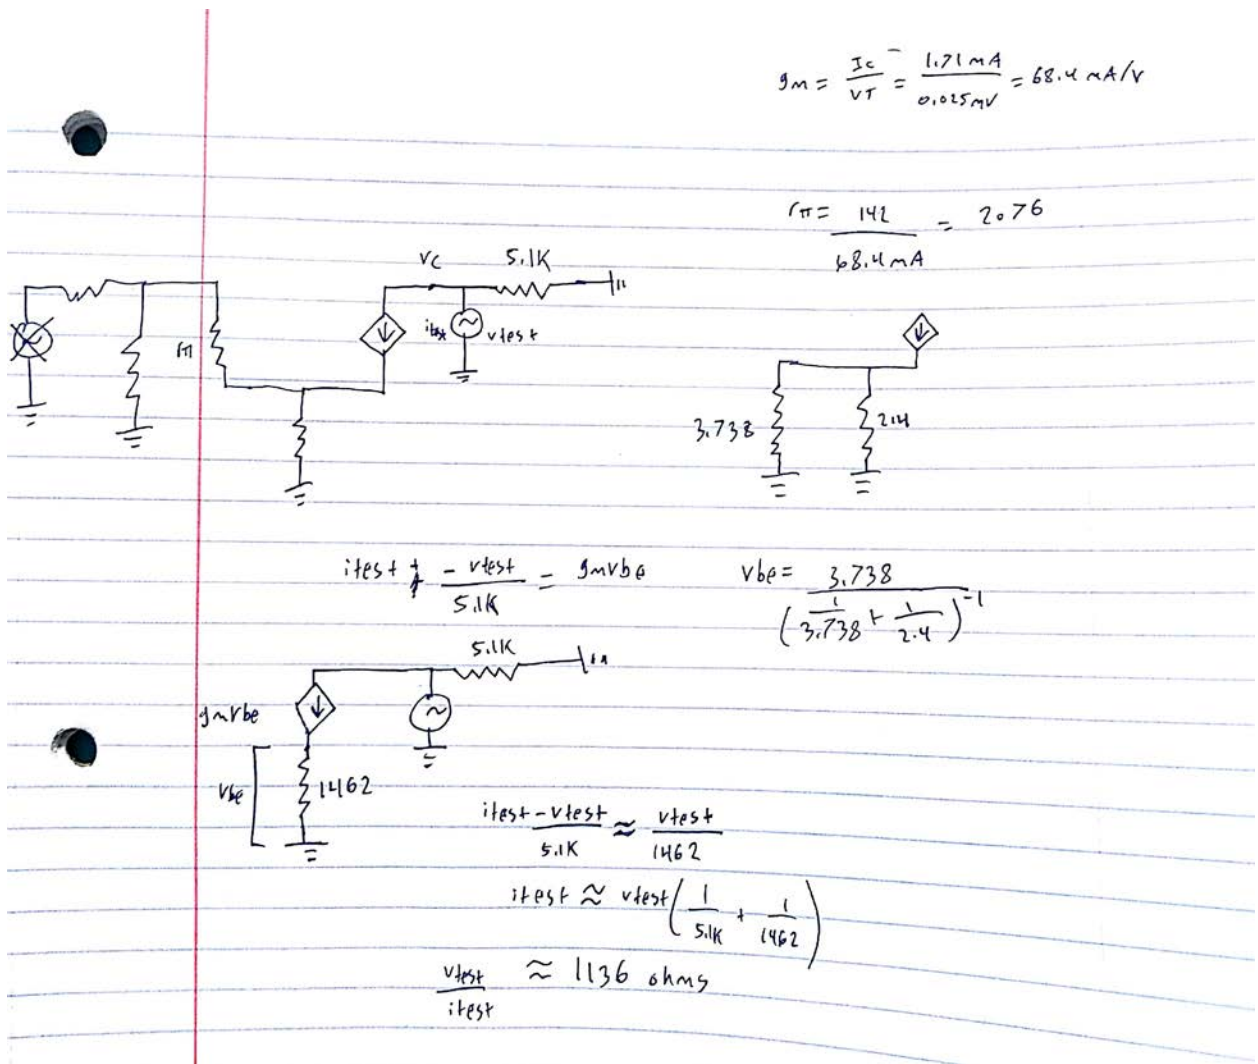 gm = Ic / VT = 1.71 mA / 0.025 mV = 68.4 mA/V
rπ = 142 / 68.4 mA = 2076
vc 5.1K
rπ itest vtest
3.738 2.4
itest + - vtest / 5.1K = gmvbe vbe = 3.738 / (1/3.738 + 1/2.4)^-1
5.1K
gmvbe
vbe 1462
itest - vtest / 5.1K ≈ vtest / 1462
itest ≈ vtest (1/5.1K + 1/1462)
vtest / itest ≈ 1136 ohms